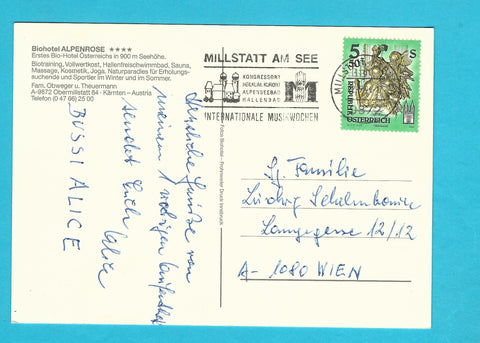 Biohotel ALPENROSE ★★★★
Erstes Bio-Hotel Österreichs in 900 m Seehöhe.
Biotraining, Vollwertkost, Hallenfreischwimmbad, Sauna,
Massage, Kosmetik, Joga, Naturparadies für Erholung-
suchende und Sportler im Winter und im Sommer.
Fam. Obweger u. Theuermann
A-9872 Obermillstatt 84 · Kärnten – Austria
Telefon (0 47 66) 25 00
MILLSTATT AM SEE
KONGRESSORT
HEILKLIMAKURORT
ALPENSEEBAD
HALLENBAD
INTERNATIONALE MUSIKWOCHEN
MILLST
5
50
S
REPUBLIK
ÖSTERREICH
Herzliche Grüße von
meinem 1 wöchigen
sendet Euch Alice
BUSSI ALICE
Druck Innsbruck
Familie
Ludwig
Langegasse 12/12
A-1080 WIEN